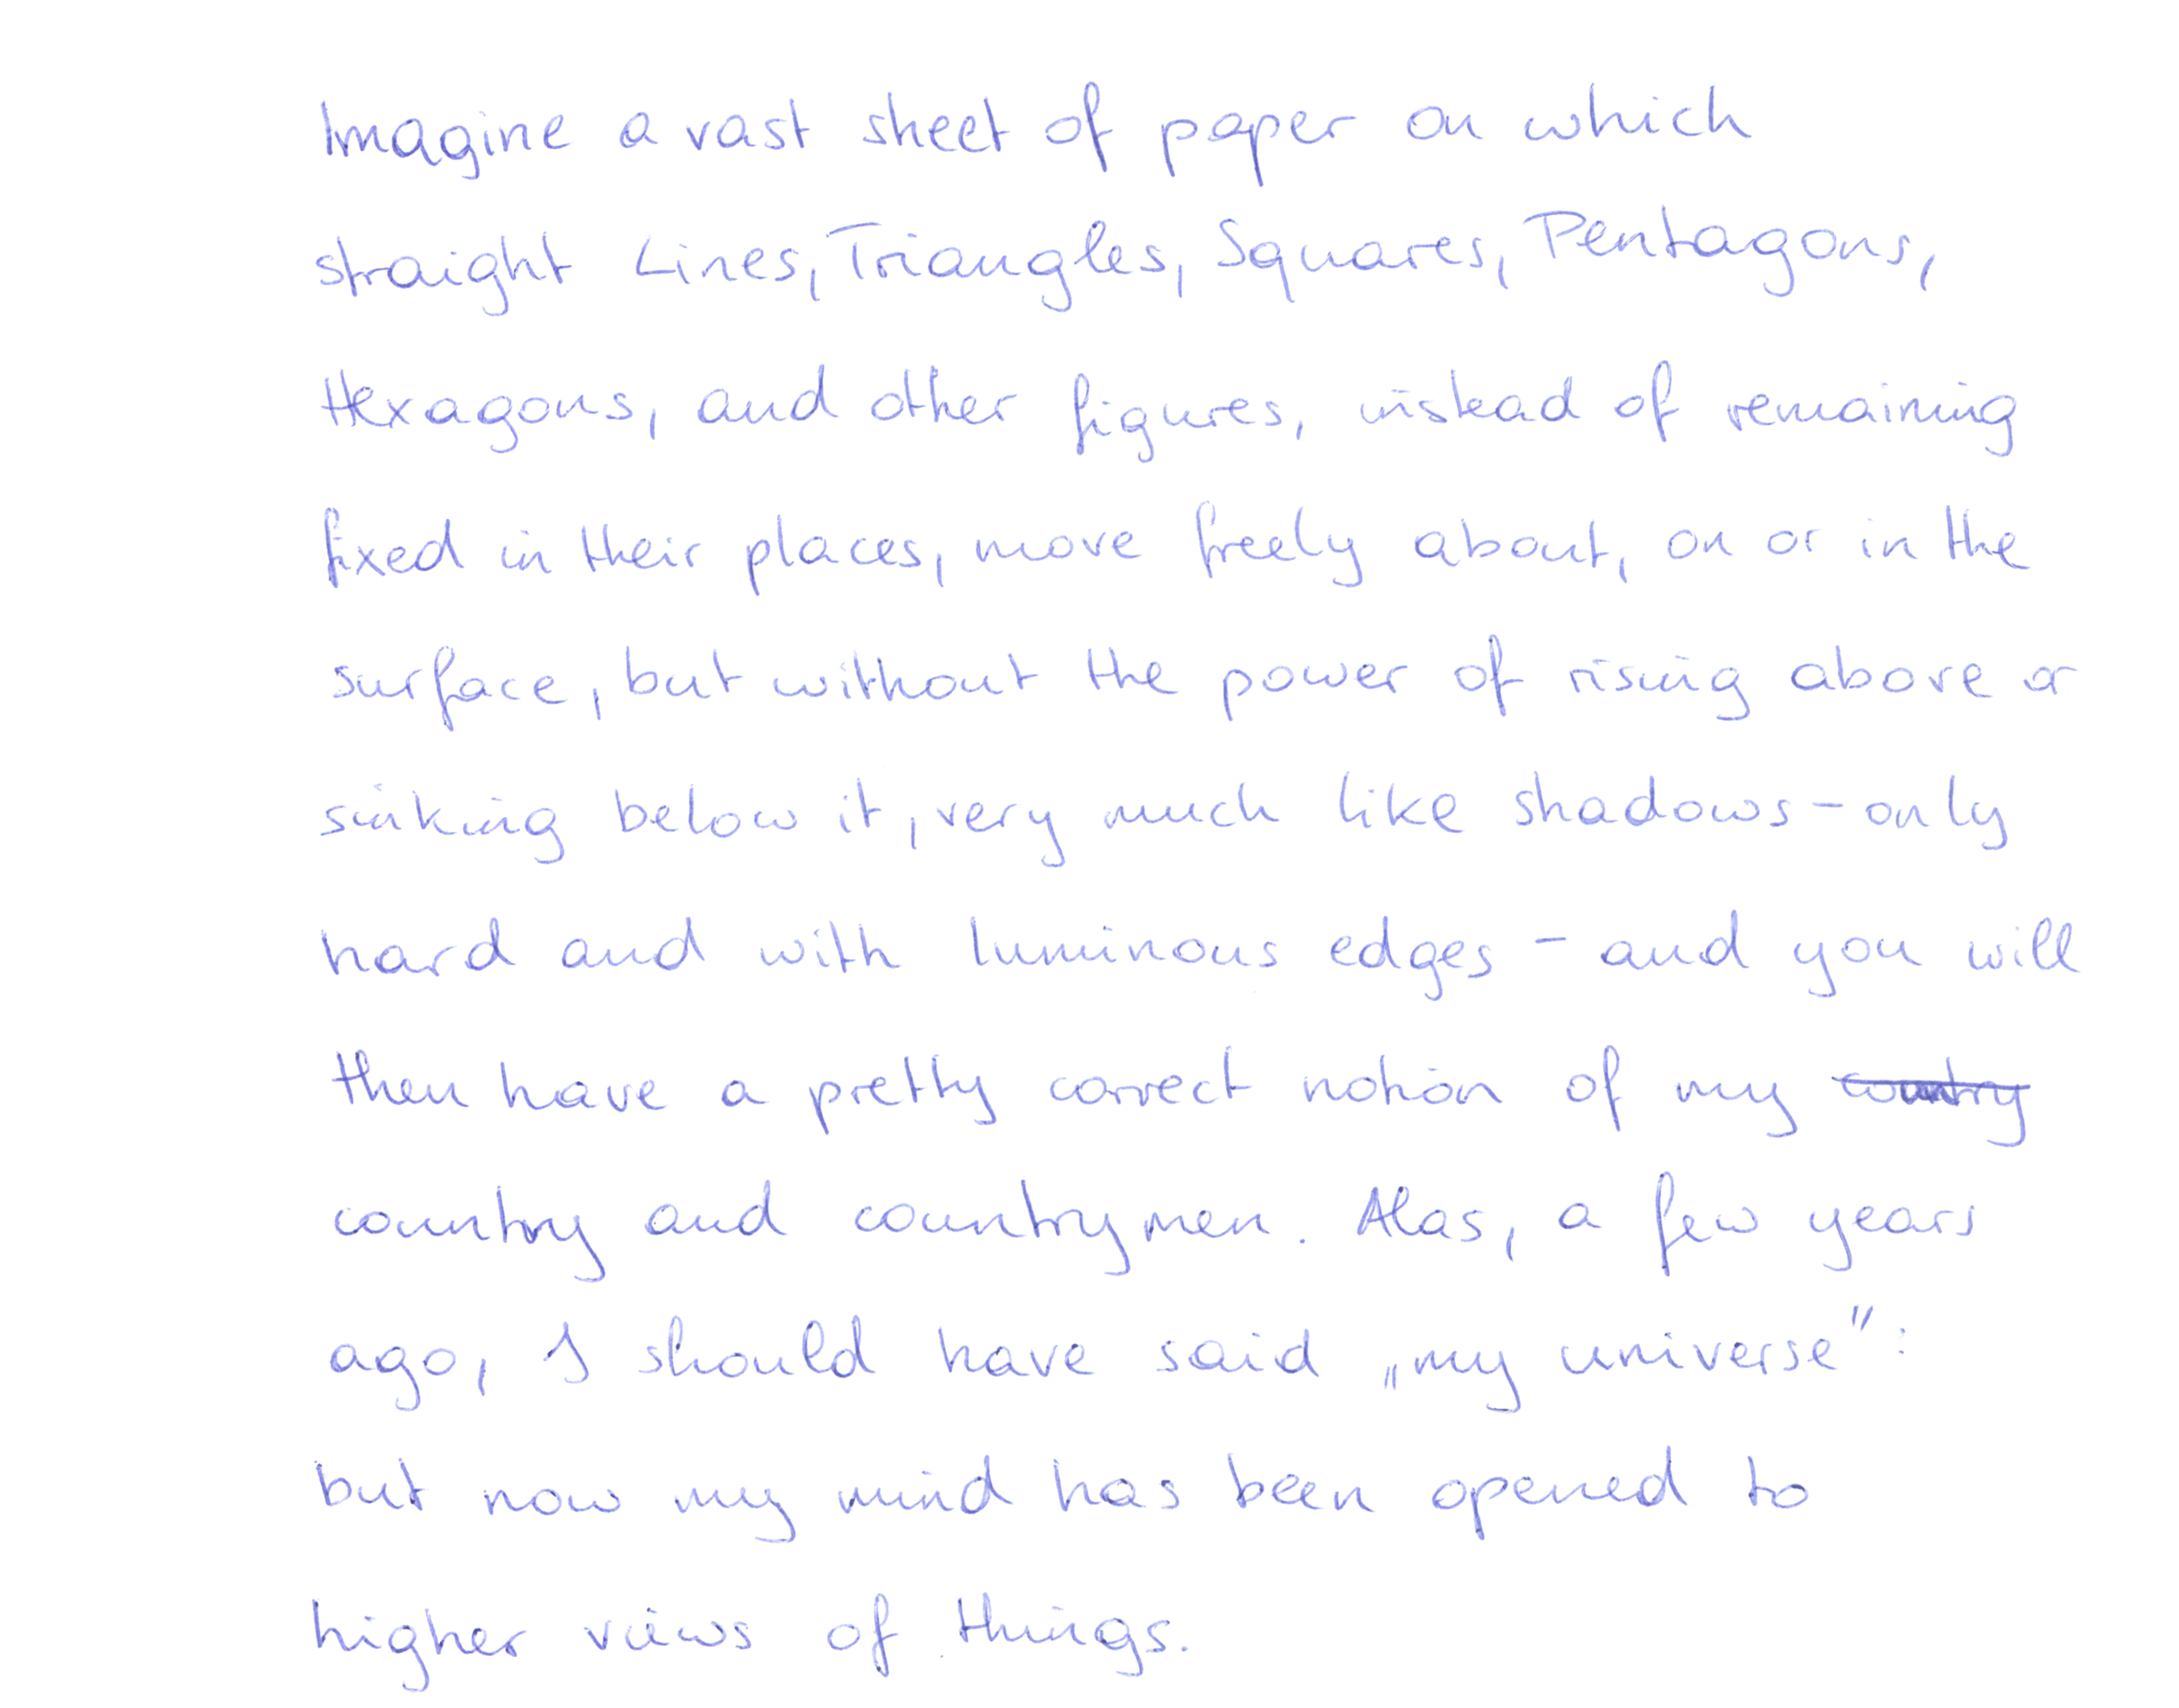 Imagine a vast sheet of paper on which
straight Lines, Triangles, Squares, Pentagons,
Hexagons, and other figures, instead of remaining
fixed in their places, move freely about, on or in the
surface, but without the power of rising above or
sinking below it, very much like shadows – only
hard and with luminous edges – and you will
then have a pretty correct notion of my ~~country~~
country and countrymen. Alas, a few years
ago, I should have said „my universe":
but now my mind has been opened to
higher views of things.